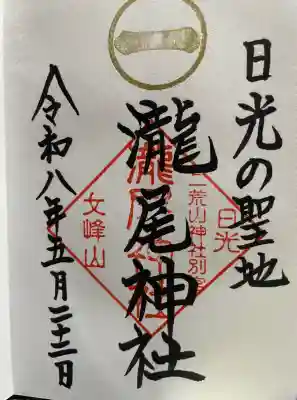 日光の聖地
瀧尾神社
令和八年五月二十二日
日光
二荒山神社別宮
女峰山